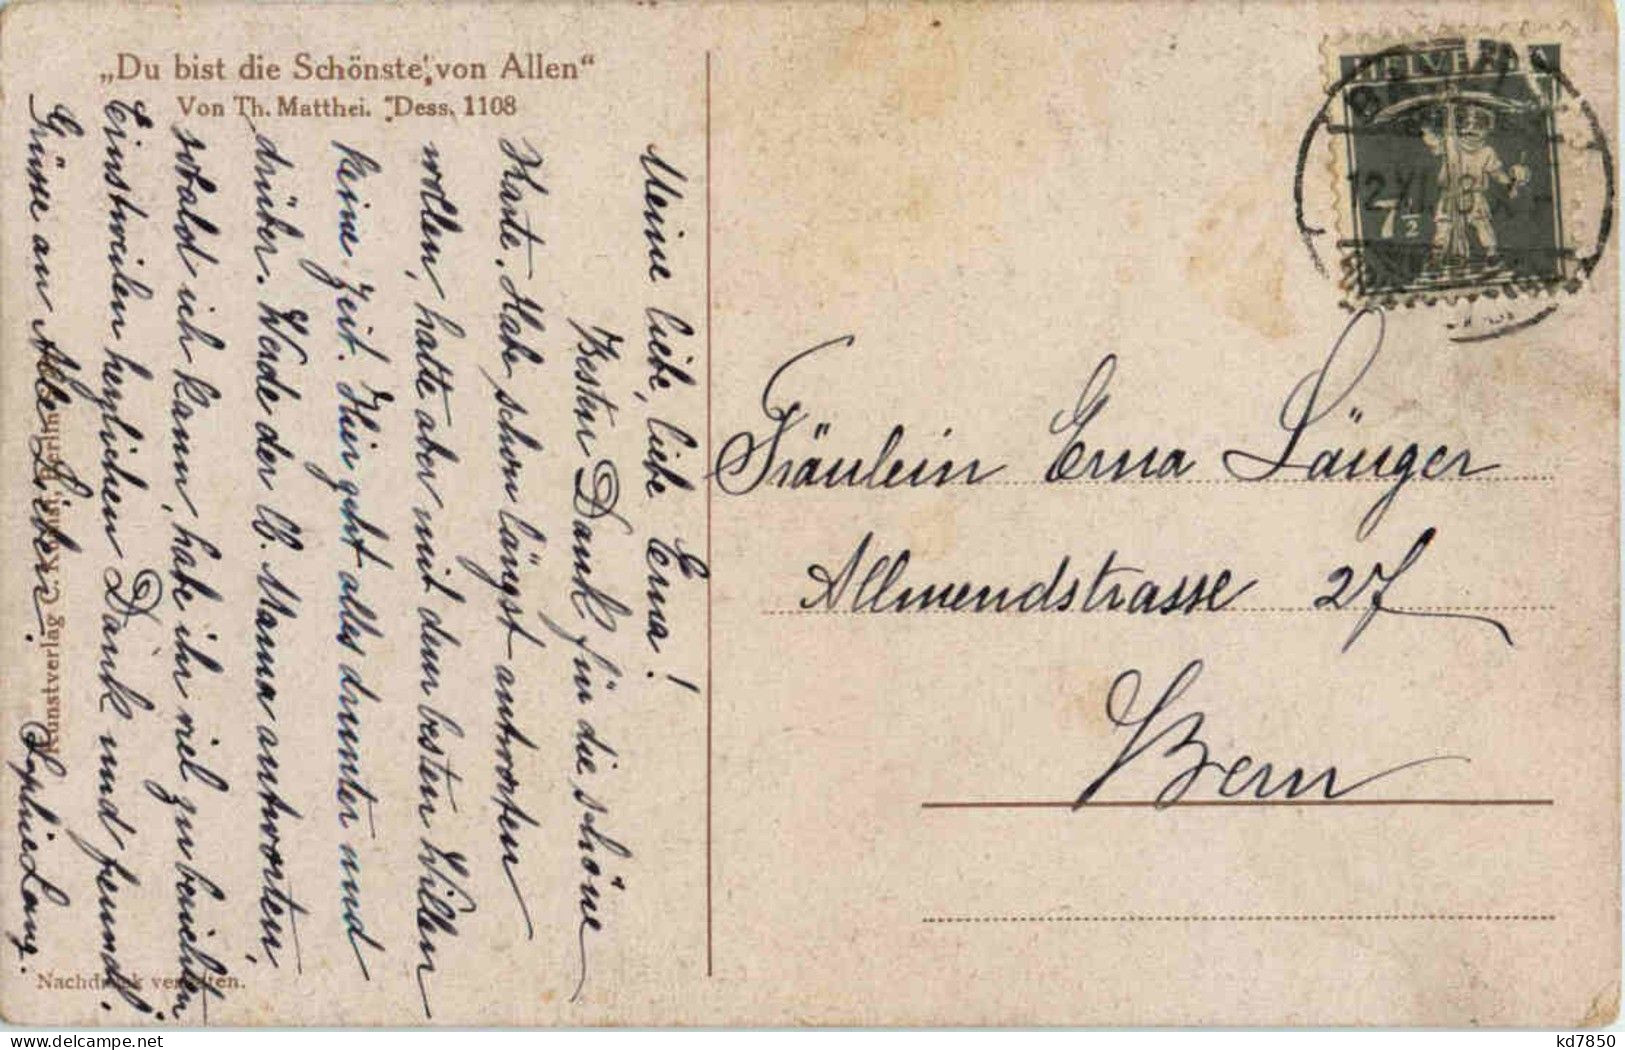 „Du bist die Schönste von Allen“
Von Th. Matthei. Dess. 1108
Meine liebe, liebe Erna!
Besten Dank für die schöne
Karte. Habe schon längst antworten
wollen, hatte aber mit dem besten Willen
keine Zeit. Hier geht alles drunter und
drüber. Werde der lb. Mama antworten,
sobald ich kann, habe ihr viel zu berichten.
Einstweilen herzlichen Dank und freundl.
Grüsse an Alle Lieben.
Sophie Lang.
Kunstverlag C. Berlin
Nachdruck verboten.
HELVETIA
7½
12.XI.
Fräulein Erna Länger
Allmendstrasse 27
Bern
kd7850